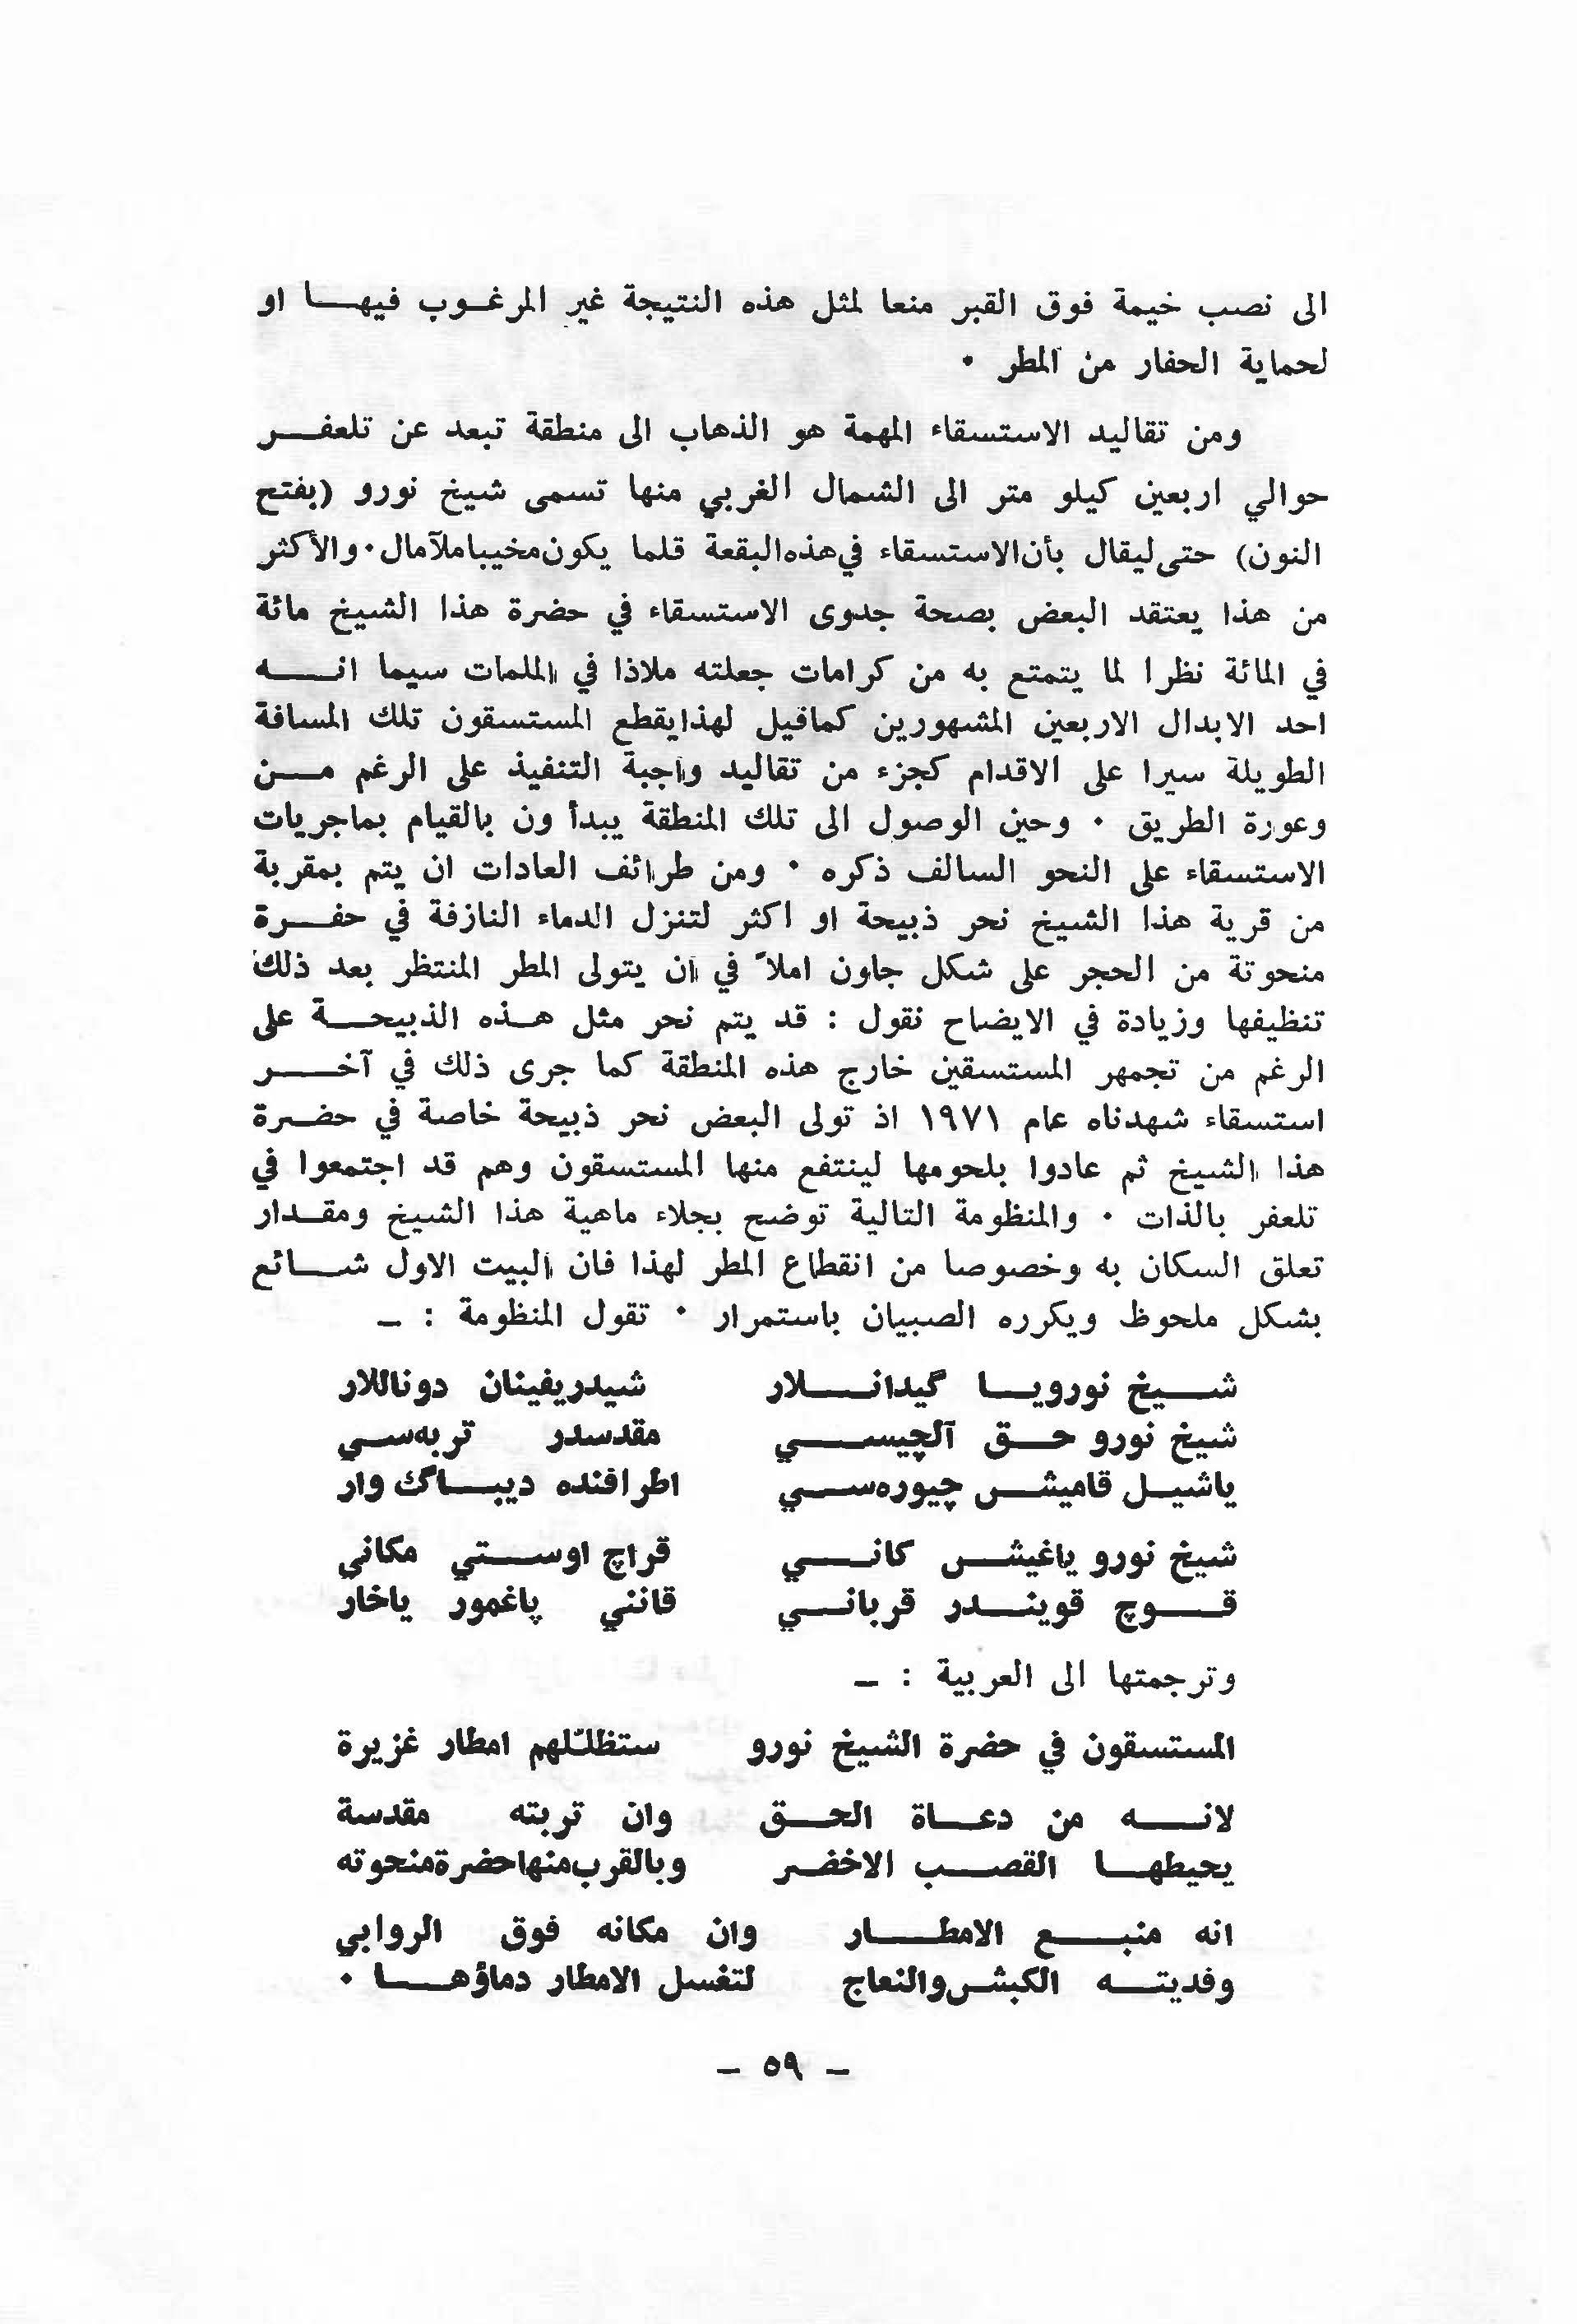 الى نصب خيمة فوق القبر منعا لمثل هذه النتيجة غير المرغوب فيها او
لحماية الحفار من المطر ٠
ومن تقاليد الاستسقاء المهمة هو الذهاب الى منطقة تبعد عن تلعفر
حوالي اربعين كيلو متر الى الشمال الغربي منها تسمى شيخ نورو (بفتح
النون) حتى ليقال بأن الاستسقاء في هذه البقعة قلما يكون مخيبا ملآمال ٠ والأكثر
من هذا يعتقد البعض بصحة جدوى الاستسقاء في حضرة هذا الشيخ مائة
في المائة نظرا لما يتمتع به من كرامات جعلته ملاذا في الملمات سيما انه
احد الابدال الاربعين المشهورين كماقيل لهذا يقطع المستسقون تلك المسافة
الطويلة سيرا على الاقدام كجزء من تقاليد واجبة التنفيذ على الرغم من
وعورة الطريق ٠ وحين الوصول الى تلك المنطقة يبدأ ون بالقيام بماجريات
الاستسقاء على النحو السالف ذكره ٠ ومن طرائف العادات ان يتم بمقربة
من قرية هذا الشيخ نحر ذبيحة او اكثر لتنزل الدماء النازفة في حفرة
منحوتة من الحجر على شكل جاون املاً في ان يتولى المطر المنتظر بعد ذلك
تنظيفها وزيادة في الايضاح نقول : قد يتم نحر مثل هذه الذبيحة على
الرغم من تجمهر المستسقين خارج هذه المنطقة كما جرى ذلك في آخر
استسقاء شهدناه عام ١٩٧١ اذ تولى البعض نحر ذبيحة خاصة في حضرة
هذا الشيخ ثم عادوا بلحومها لينتفع منها المستسقون وهم قد اجتمعوا في
تلعفر بالذات ٠ والمنظومة التالية توضح بجلاء ماهية هذا الشيخ ومقدار
تعلق السكان به وخصوصا من انقطاع المطر لهذا فان البيت الاول شائع
بشكل ملحوظ ويكرره الصبيان باستمرار ٠ تقول المنظومة : ـ
شيخ نورويا گيدانلار شيدريفينان دوناللار
شيخ نورو حق آلچيسي مقدسدر تربه‌سي
ياشيل قاميش چيوره‌سي اطرافنده ديباگ وار
شيخ نورو ياغيش كاني قراچ اوستي مكاني
قوچ قويندر قرباني قانني ياغمور ياخار
وترجمتها الى العربية : ـ
المستسقون في حضرة الشيخ نورو ستظللّهم امطار غزيرة
لانه من دعاة الحق وان تربته مقدسة
يحيطها القصب الاخضر وبالقرب منها حضرة منحوته
انه منبع الامطار وان مكانه فوق الروابي
وفديته الكبش والنعاج لتغسل الامطار دماؤها ٠
ـ ٥٩ ـ